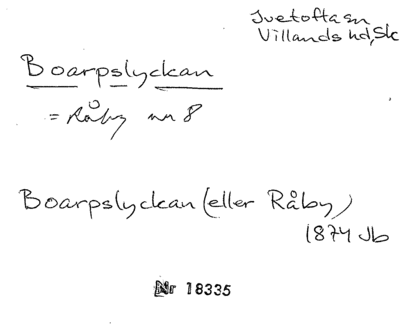 Ivetofta sn
Villands hd, Sk
Boarpslyckan
= Råby nr 8
Boarpslyckan (eller Råby)
1874 Jb
Nr 18335